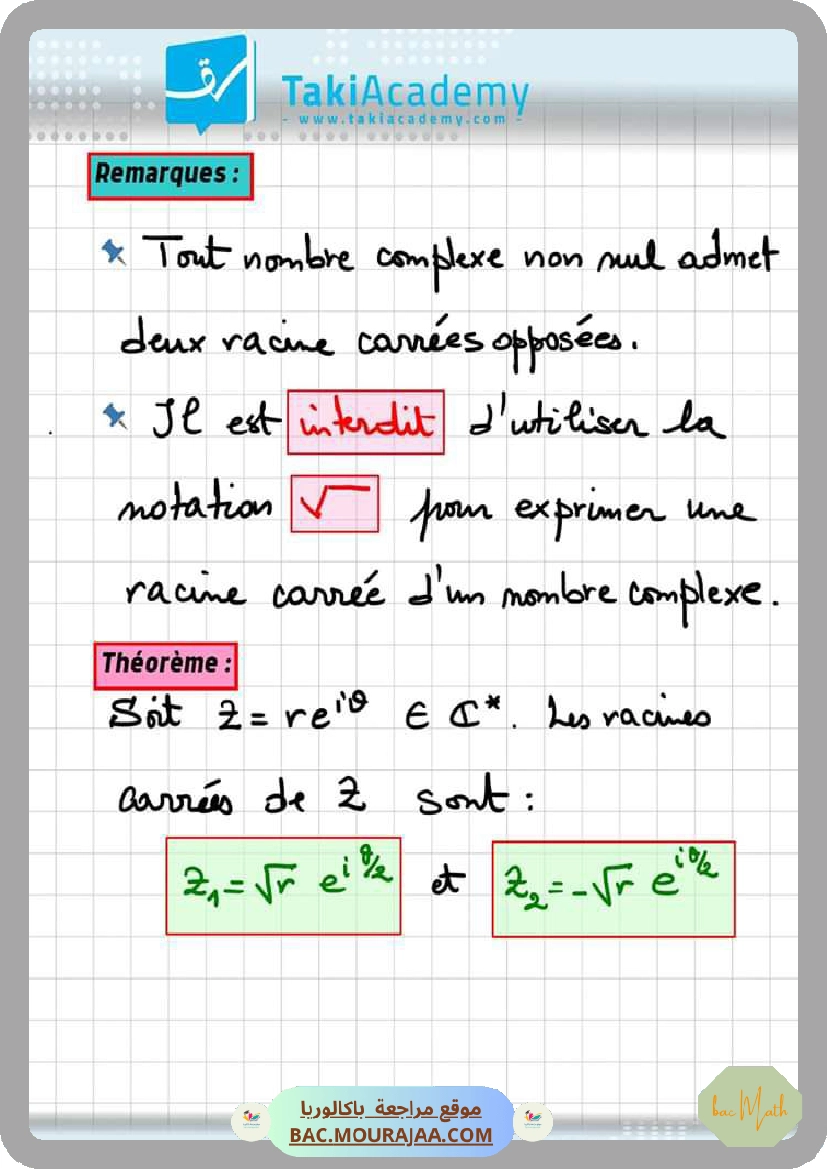 TakiAcademy
- www.takiacademy.com -
Remarques :
Tout nombre complexe non nul admet
deux racine carrées opposées.
Il est interdit d'utiliser la
notation √ pour exprimer une
racine carrée d'un nombre complexe.
Théorème :
Soit Z = re^{iθ} ∈ ℂ*. Les racines
carrées de Z sont :
Z₁ = √r e^{iθ/2} et Z₂ = -√r e^{iθ/2}
موقع مراجعة باكالوريا
BAC.MOURAJAA.COM
bac Math